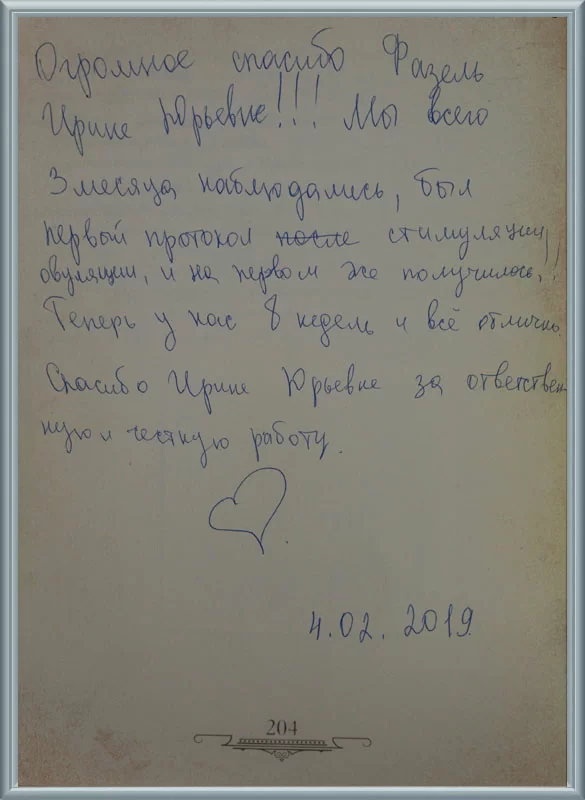 Огромное спасибо Фазель
Ирине Юрьевне!!! Мы всего
3 месяца наблюдались, был
первый протокол после стимуляции
овуляции, и на первом же получилось!!
Теперь у нас 8 недель и всё отлично.
Спасибо Ирине Юрьевне за ответствен-
ную и честную работу.
4.02.2019
204